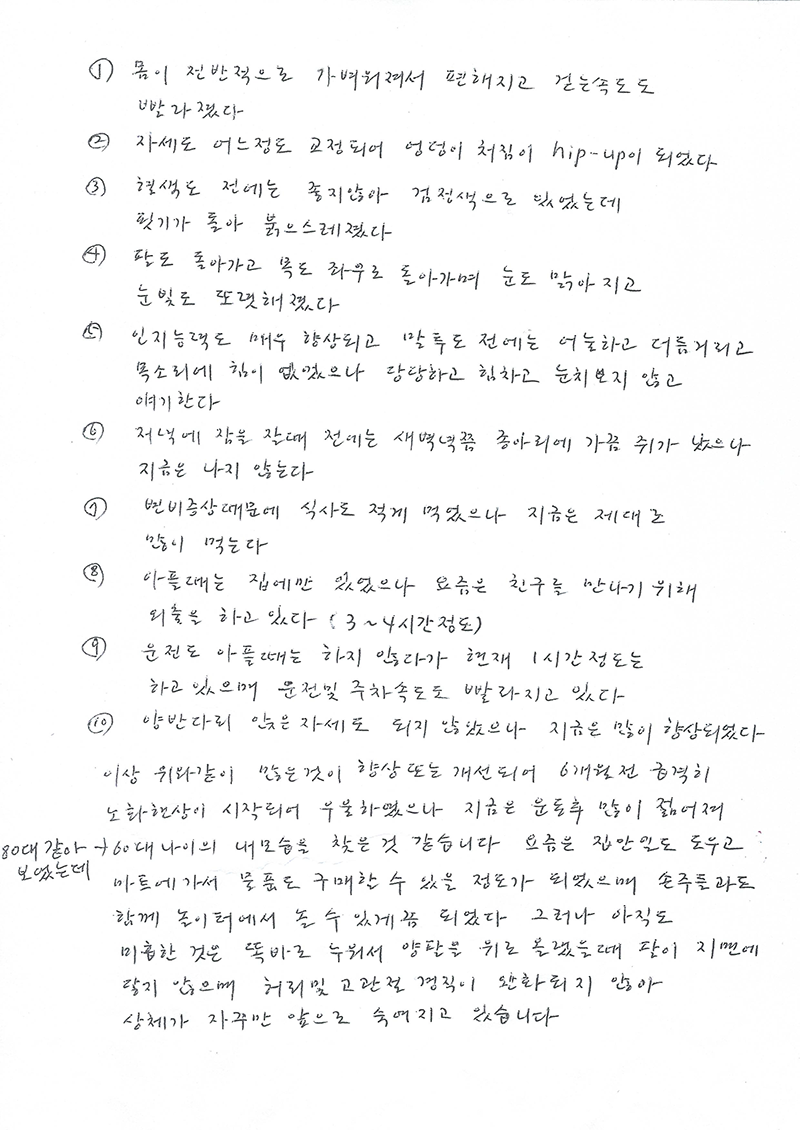 ① 몸이 전반적으로 가벼워져서 편해지고 걷는속도도
빨라졌다
② 자세도 어느정도 교정되어 엉덩이 처짐이 hip-up이 되었다
③ 혈색도 전에는 좋지않아 검정색으로 있었는데
핏기가 돌아 붉으스레졌다
④ 팔도 돌아가고 목도 좌우로 돌아가며 눈도 맑아지고
눈빛도 또렷해졌다
⑤ 인지능력도 매우 향상되고 말투도 전에는 어눌하고 더듬거리고
목소리에 힘이 없었으나 당당하고 힘차고 눈치보지 않고
얘기한다
⑥ 저녁에 잠을 잘때 전에는 새벽녘쯤 종아리에 가끔 쥐가 났으나
지금은 나지 않는다
⑦ 변비증상때문에 식사도 적게 먹었으나 지금은 제대로
많이 먹는다
⑧ 아플때는 집에만 있었으나 요즘은 친구를 만나기 위해
외출을 하고 있다 (3~4시간정도)
⑨ 운전도 아플때는 하지 않다가 현재 1시간정도는
하고 있으며 운전및 주차속도도 빨라지고 있다
⑩ 양반다리 앉은자세도 되지 않았으나 지금은 많이 향상되었다
이상 위와같이 많은것이 향상 또는 개선되어 6개월전 급격히
노화현상이 시작되어 우울하였으나 지금은 운동후 많이 젊어져
80대 같아 보였는데 → 60대 나이의 내모습을 찾은것 같습니다 요즘은 집안일도 도우고
마트에가서 물품도 구매할 수 있을 정도가 되었으며 손주들과도
함께 놀이터에서 놀 수 있게끔 되었다 그러나 아직도
미흡한 것은 똑바로 누워서 양팔을 위로 올렸을때 팔이 지면에
닿지 않으며 허리및 고관절 경직이 완화되지 않아
상체가 자꾸만 앞으로 숙여지고 있습니다